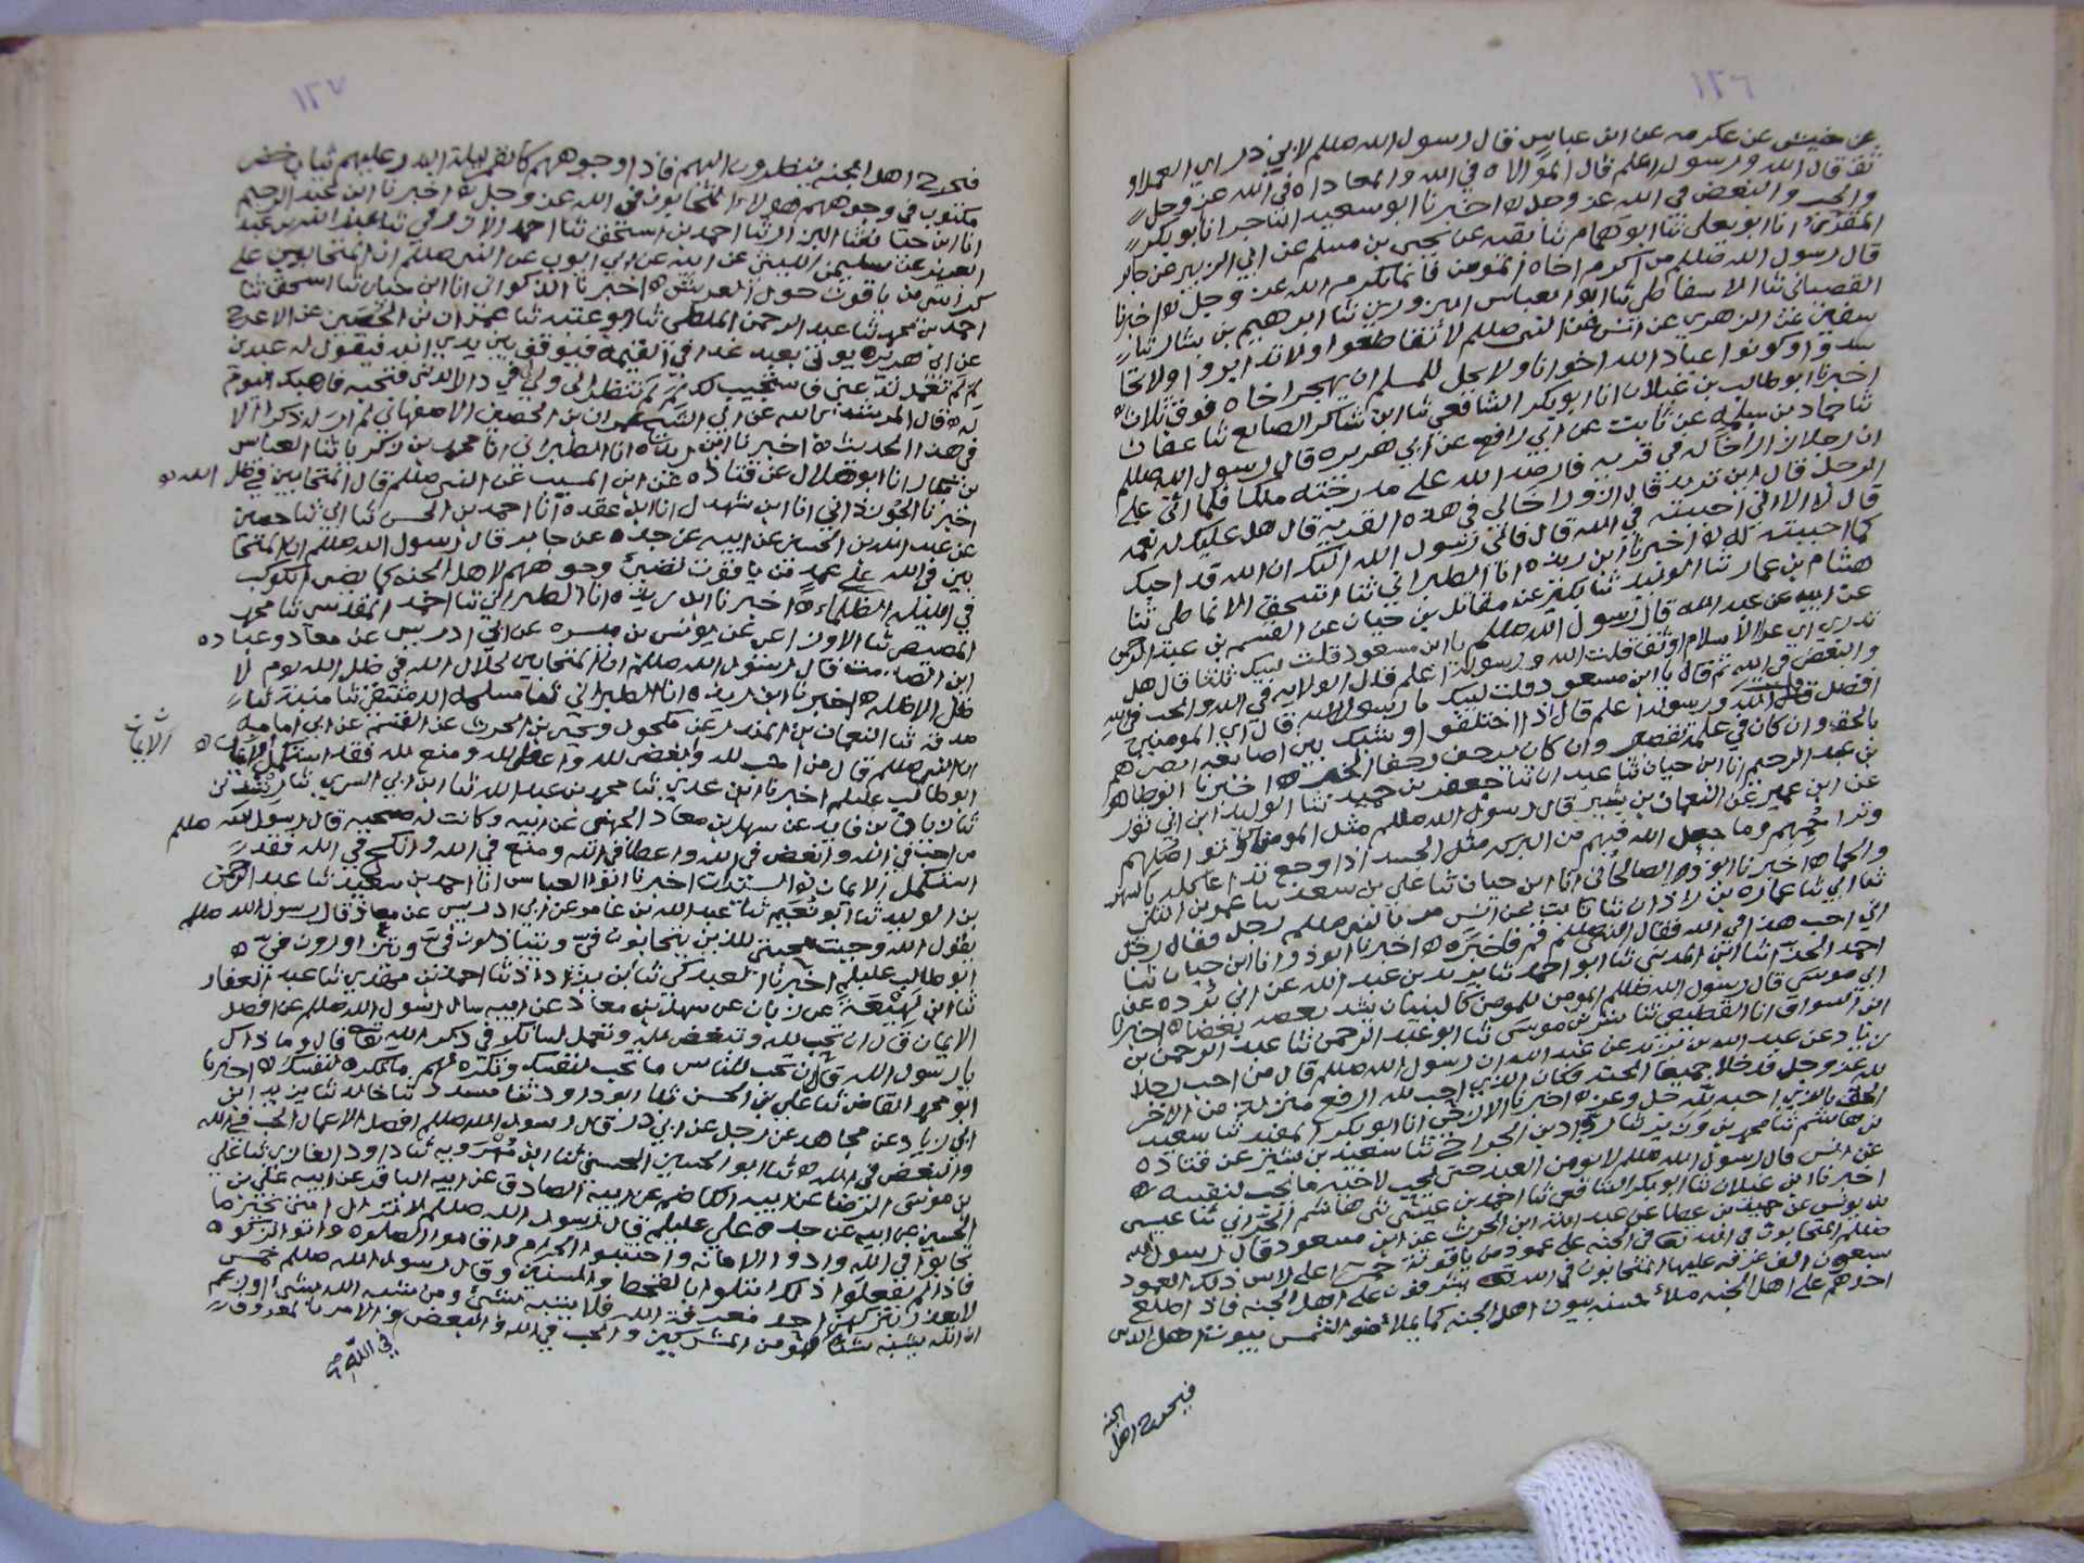 ١٢٦
عن حنش عن عكرمه عن ابن عباس قال رسول الله صللم لابي ذر اي العملاو
ثق قال الله ورسوله اعلم قال الموالاه في الله والمعاداه في الله عز وجل
والحب والبغض في الله عز وجل ه اخبرنا ابو سعيد التاجر انا ابو بكر
المقري انا ابو يعلى ثنا ابو همام ثنا بقيه عن يحيى بن مسلم عن ابي الزبير عن جابر
قال رسول الله صللم من اكرم اخاه المومن فانما يكرم الله عز وجل ه اخبرنا
القصباني ثنا الاسفاطي ثنا ابو العباس ثنا ابرهيم بن بشار ثنا
سفين عن الزهري عن انس عن النبي صللم لا تقاطعوا ولا تدابروا ولا تحا
سدوا وكونوا عباد الله اخوانا ولا يحل للمسلم ان يهجر اخاه فوق ثلاث ه
اخبرنا ابو طالب بن غيلان انا ابو بكر الشافعي ثنا ابن شاكر الصايع ثنا عفان
ثنا حماد بن سلمه عن ثابت عن ابي رافع عن ابي هريره قال رسول الله صللم
ان رجلا زار اخا له في قريه فارصد الله على مدرجته ملكا فلما اتى على
الرجل قال اين تريد قال ازور اخا لي في هذه القريه قال هل عليك له نعمه
قال لا الا اني احببته في الله قال فاني رسول الله اليك ان الله قد احبك
كما احببته له ه اخبرنا ابن ريذه انا الطبراني ثنا اسحق الانماطي ثنا
هشام بن عمار ثنا الوليد ثنا بكير عن مقاتل بن حيان عن القسم بن عبد الرحمن
عن ابيه عن عبد الله قال رسول الله صللم يا ابن مسعود قلت لبيك ثلثا قال هل
تدري اي عرا الاسلام اوثق قلت الله ورسوله اعلم قال الولايه في الله والحب في الله
والبغض في الله ثم قال يا ابن مسعود قلت لبيك يا رسول الله قال اي المومنين
افضل قلت الله ورسوله اعلم قال اذا اختلفوا وشبك بين اصابعه ابصرهم
بالحق وان كان في عمله تقصير وان كان يزحف زحفا ه اخبرنا ابو طاهر
بن عبد الرحيم انا ابن حيان ثنا عبدان ثنا جعفر بن حميد ثنا الوليد ابن ابي ثور
عن ابن عمير عن النعمان بن بشير قال رسول الله صللم مثل المومنين في تواصلهم
وتراحمهم وما جعل الله فيهم من البر مثل الجسد اذا وجع تداعا كله بالسهر
والحما ه اخبرنا ابو ذر الصالحاني انا ابن حيان ثنا علي بن سعيد ثنا عمرو بن
ثنا ابي ثنا عماره بن زاذان ثنا ثابت عن انس مر بالنبي صللم رجل فقال رجل
اني احب هذا في الله فقال النبي صللم قم فاخبره ه اخبرنا ابو ذر انا ابن حيان ثنا
احمد ثنا ابن المديني ثنا ابو احمد ثنا بريد بن عبد الله عن ابي برده عن
ابي موسى قال رسول الله صللم المومن للمومن كالبنيان يشد بعضه بعضا ه اخبرنا
ابن السواق انا القطيعي ثنا بشر بن موسى ثنا ابو عبد الرحمن ثنا عبد الرحمن بن
زياد عن عبد الله بن يزيد عن عبد الله ان رسول الله صللم قال من احب رجلا
لله عز وجل قد خلا جميعا الجنه فكان الذي احب لله ارفع منزله من الاخر
الحق بالذي احبه لله جل وعز ه اخبرنا الازجي انا ابو بكر المفيد ثنا سعيد
بن هاشم ثنا محمد بن وزير ثنا بن الجراح ثنا سعيد بن بشير عن قتاده
عن انس قال رسول الله صللم لا يومن العبد حتى يحب لاخيه ما يحب لنفسه ه
اخبرنا ابن غيلان ثنا ابو بكر الشافعي ثنا احمد بن عيسى ثنى هاشم الحراني ثنا عيسى
بن يونس عن حميد بن عطا عن عبد الله ابن الحرث عن ابن مسعود قال رسول الله
صللم المتحابون في الله تعا في الجنه على عمود من ياقوته حمرا على راس ذلك العمود
سبعون الف غرفه عليها المتحابون في الله يشرفون على اهل الجنه فاذا اطلع
احدهم على اهل الجنه ملأ حسنه بيوت اهل الجنه كما يملا ضو الشمس بيوت اهل الدنيا
فيخرج اهل الجنه
١٢٧
فيخرج اهل الجنه ينظرون اليهم فاذا وجوههم كالقمر ليلة البدر عليهم ثياب خضر
مكتوب في وجوههم هولاء المتحابون في الله عز وجل ه اخبرنا ابن عبد الرحيم
انا ابن حيان ثنا البزار ثنا احمد بن اسحق ثنا احمد الازرقي ثنا عبد الله بن عبد
العزيز عن سليمن الليثي عن ابيه عن ابي ايوب عن النبي صللم ان المتحابين على
كراسي من ياقوت حول العرش ه اخبرنا الذكواني انا ابن حيان ثنا اسحق ثنا
احمد بن محمد ثنا عبد الرحمن الملطي ثنا ابو عتبه ثنا عمران بن الحصين عن الاعرج
عن ابي هريره يوتى بعبد غدا في القيمه فيوقف بين يدي الله فيقول له عبدي
في دار الدنيا فتحبه فاهبك اليوم
له ه قال المرشد بالله عن ابي الشيخ عمران بن الحصين الاصفهاني لم ار له ذكرا الا
في هذا الحديث ه اخبرنا ابن ريذه انا الطبراني انا محمد بن زكريا ثنا العباس
بن بكار انا ابو هلال عن قتاده عن ابن المسيب عن النبي صللم قال المتحابين في ظل الله ه
اخبرنا الجوزداني انا ابن شهدل انا ابن عقده انا احمد بن الحسن ثنا ابي ثنا حصين
عن عبد الله بن الحسن عن ابيه عن جده عن جابر قال رسول الله صللم ان المتحا
بين في الله على عمد من ياقوت تضيئ وجوههم لاهل الجنه كما يضي الكوكب
في الليله الظلماء ه اخبرنا ابن ريذه انا الطبراني ثنا احمد المقدسي ثنا محمد
المصيصي ثنا الاوزاعي عن يونس بن ميسره عن ابي ادريس عن معاذ وعباده
ابن الصامت قال رسول الله صللم ان المتحابين لجلال الله في ظل الله يوم لا
ظل الا ظله ه اخبرنا ابن ريذه انا الطبراني ثنا مسلمه الدمشقي ثنا منبه ثنا
صدقه ثنا النعمان بن المنذر عن مكحول ويحيى بن الحرث عن القسم عن ابي امامه
ان النبي صللم قال من احب لله وابغض لله واعطى لله ومنع لله فقد استكمل الايمان ه
الايمان
ابو طالب عليلم اخبرنا ابن عدي ثنا محمد بن عبد الله ثنا ابن ابي السري ثنا رشدين
ثنا زبان بن فايد عن سهل بن معاذ الجهني عن ابيه وكانت له صحبه قال رسول الله صللم
من احب في الله وابغض في الله واعطا في الله ومنع في الله وانكح في الله فقد
استكمل الايمان ابو السندات اخبرنا ابو العباس انا احمد بن سعيد ثنا عبد الرحمن
بن الوليد ثنا ابو نعيم ثنا عبد الله بن عامر عن ابي ادريس عن معاذ قال رسول الله صللم
يقول الله وجبت محبتي للذين يتحابون فيّ ويتباذلون فيّ ويتزاورون فيّ ه
ابو طالب عليلم اخبرنا العبدكي ثنا بن يزداذ ثنا احمد بن مهدي ثنا عبد الغفار
ثنا ابن لهيعه عن زبان عن سهل بن معاذ عن ابيه سال رسول الله صللم عن افضل
الايمان قال ان تحب لله وتبغض لله وتعمل لسانك في ذكر الله تعا قال وما ذاك
يا رسول الله قال ان تحب للناس ما تحب لنفسك وتكره لهم ما تكره لنفسك ه اخبرنا
ابو محمد القاضي ثنا علي بن الحسن ثنا ابو داود ثنا مسدد ثنا خالد ثنا يزيد ابن
ابي زياد عن مجاهد عن رجل عن ابي ذر قال رسول الله صللم افضل الاعمال الحب في الله
والبغض في الله ه ثنا ابو الحسين الحسني ثنا ابن مهرويه ثنا داود الغازي ثنا علي
بن موسى الرضا عن ابيه الكاضم عن ابيه الصادق عن ابيه الباقر عن ابيه علي بن
الحسين عن ابيه عن جده علي عليلم قال رسول الله صللم لا تزال امتي بخير ما
تحابوا في الله وادوا الامانه واجتنبوا الحرام واقاموا الصلوه واتوا الزكوه
فاذا لم يفعلوا ذلك ابتلوا بالقحط والسنين وقال رسول الله صللم خمس
لا يعذر بتركهن احد معرفة الله فلا يشبه بشيئ ومن شبه الله بشي او زعم
ان الله يشبه شيئا فهو من المشركين والحب في الله والبغض والامر بالمعروف
في الله صح